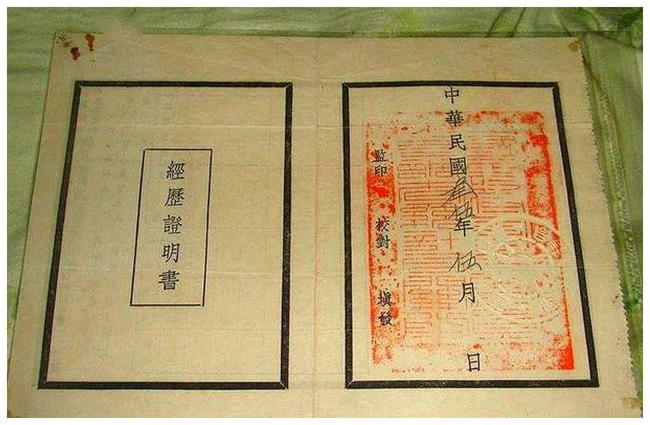 中華民國叁伍年伍月 日
監印 校對 塡發
經歷證明書